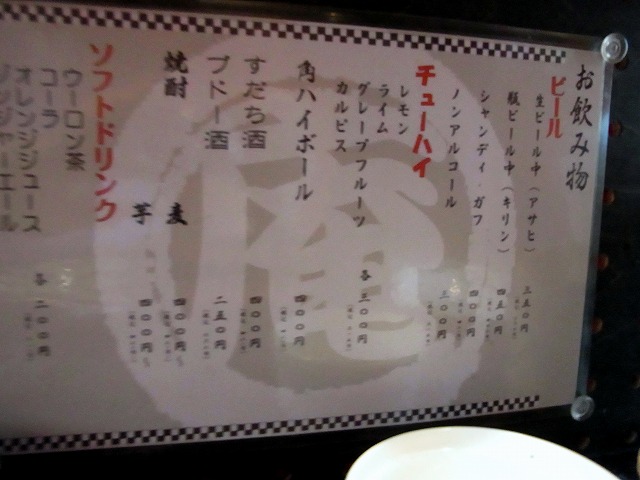 お飲み物
ビール
生ビール中（アサヒ） 三五〇円
瓶ビール中（キリン） 四五〇円
シャンディ・ガフ 四〇〇円
ノンアルコール 三〇〇円
チューハイ
レモン
ライム
グレープフルーツ 各三〇〇円
カルピス
角ハイボール 四〇〇円
すだち酒 四〇〇円
ブドー酒 二五〇円
焼酎 麦 四〇〇円
芋 四〇〇円
ソフトドリンク
ウーロン茶
コーラ 各二〇〇円
オレンジジュース
ジンジャーエール
庵